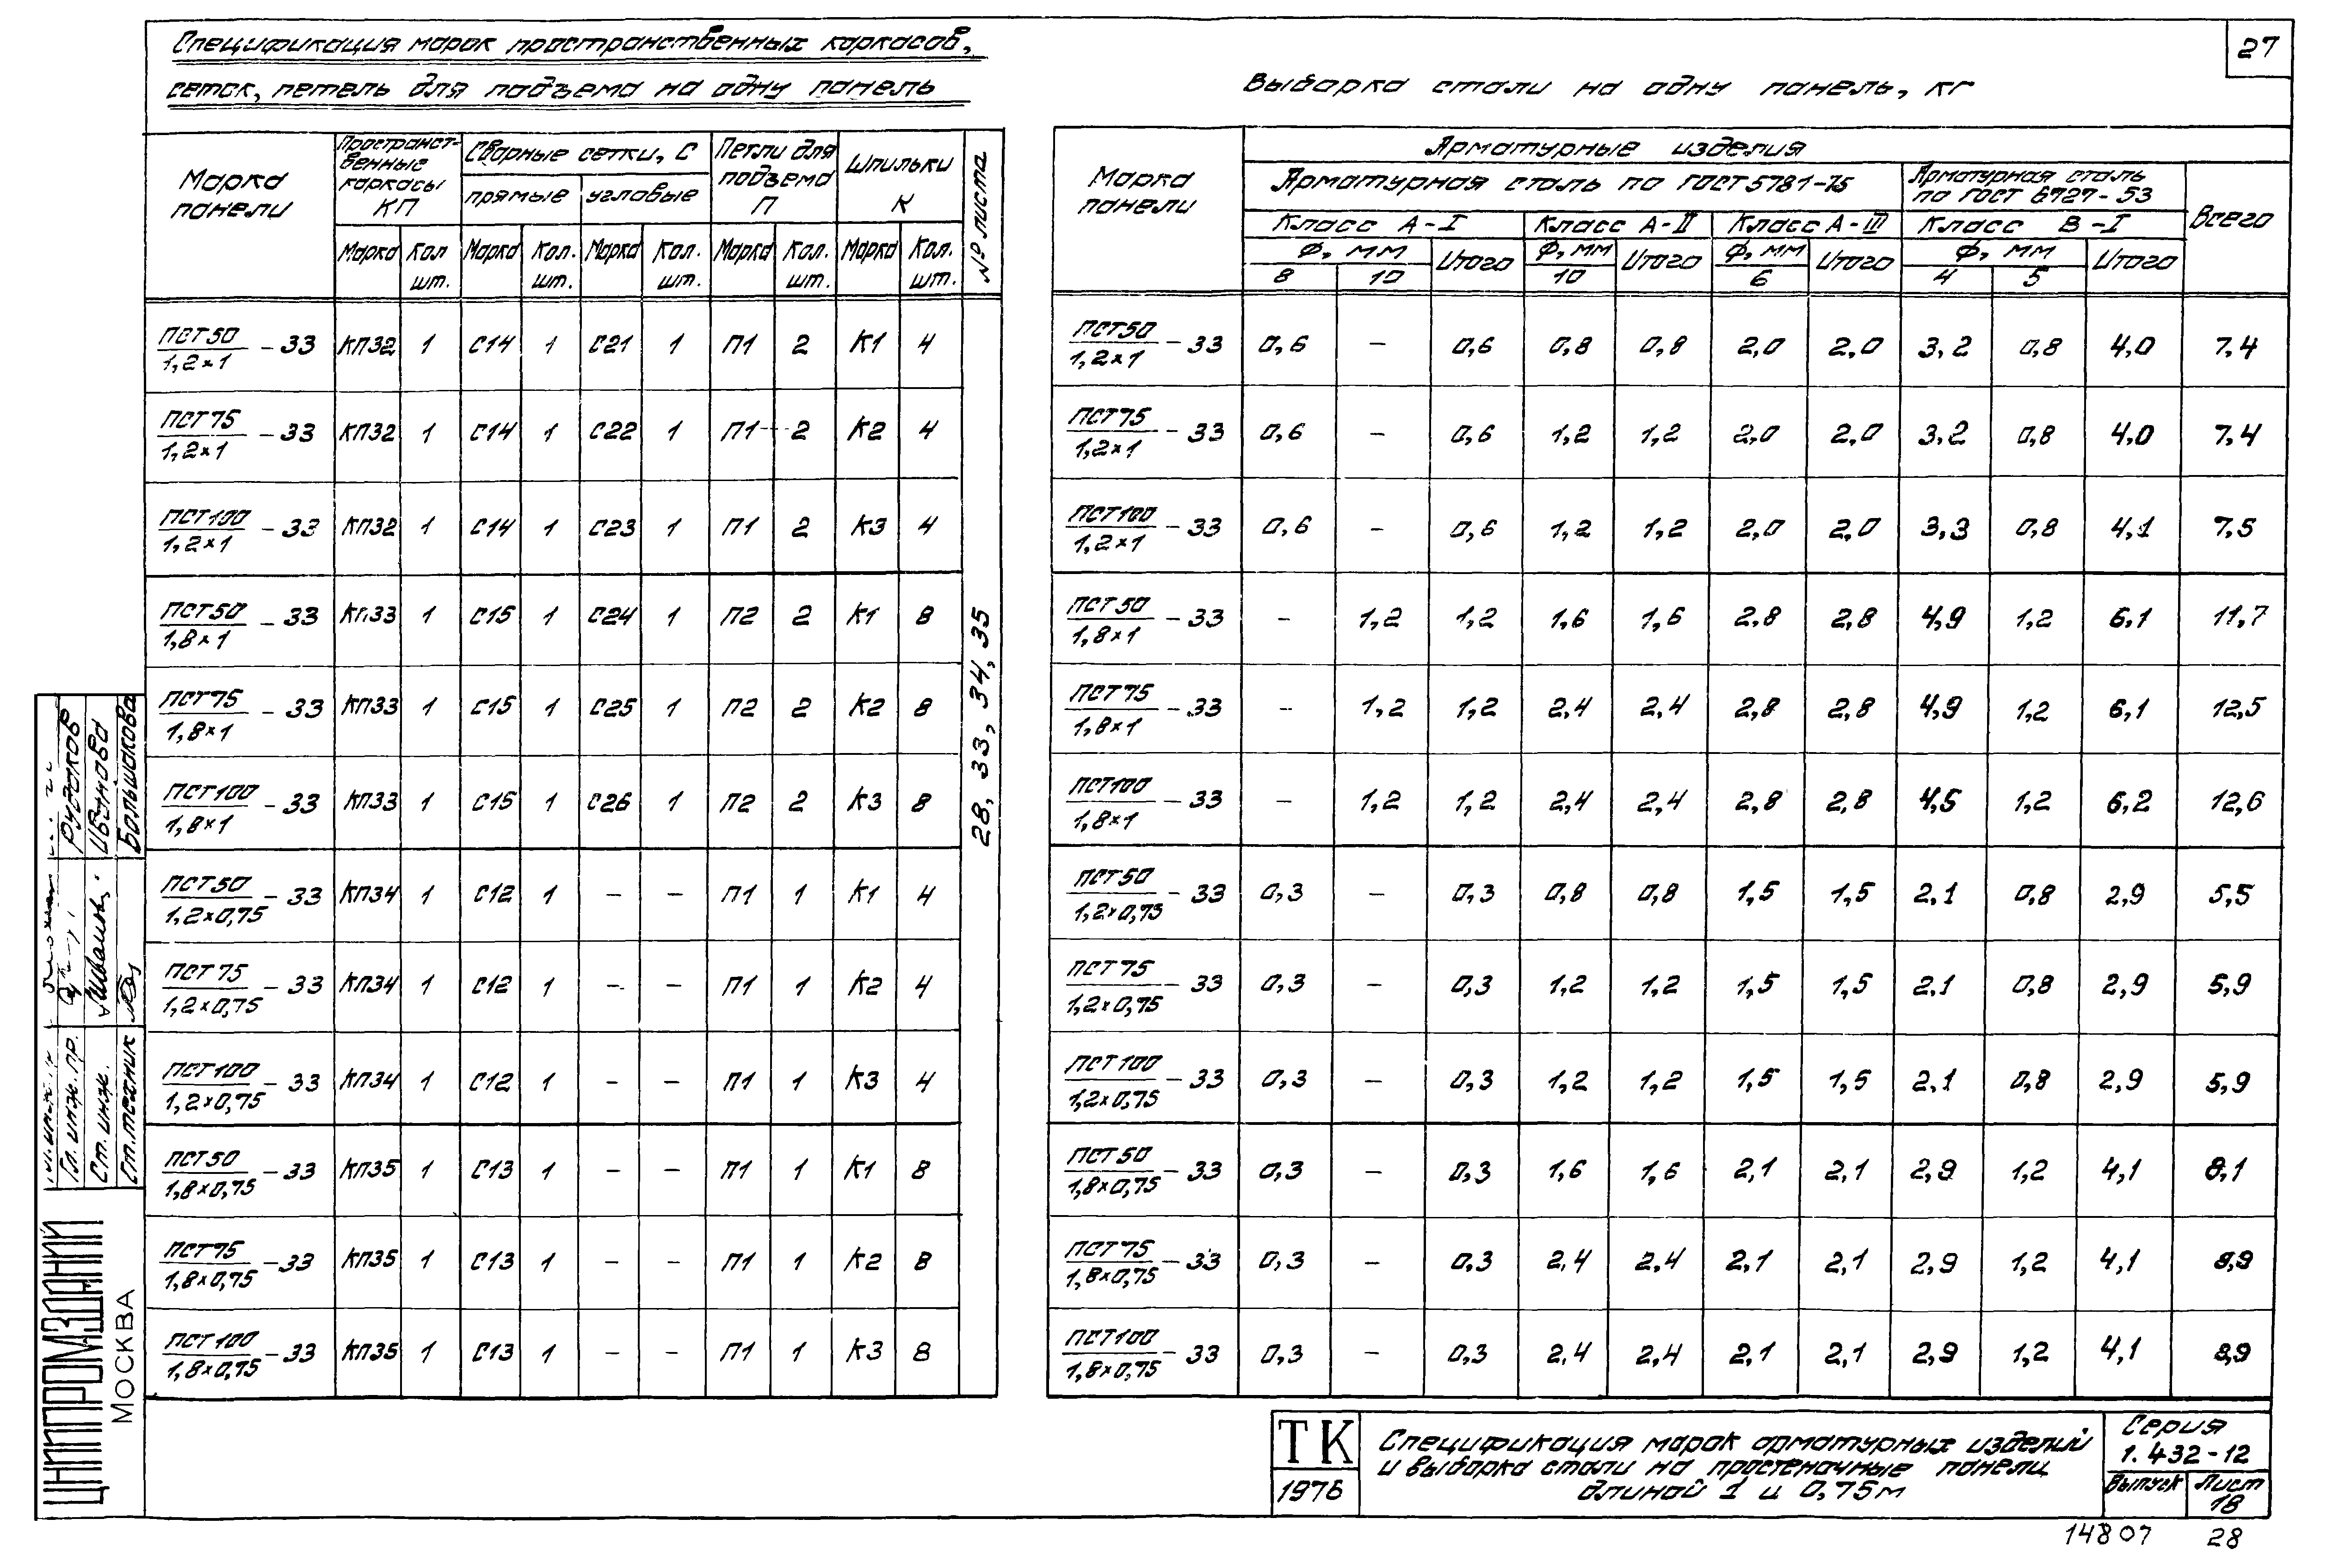 27
Спецификация марок пространственных каркасов,
сеток, петель для подъема на одну панель
Марка панели | Пространственные каркасы КП | Сварные сетки, С | Петли для подъема П | Шпильки К | № листа
прямые | угловые
Марка | Кол шт. | Марка | Кол. шт. | Марка | Кол. шт. | Марка | Кол. шт. | Марка | Кол. шт.
ПСТ50/1,2×1 – 33 | КП32 | 1 | С14 | 1 | С21 | 1 | П1 | 2 | К1 | 4
ПСТ75/1,2×1 – 33 | КП32 | 1 | С14 | 1 | С22 | 1 | П1 | 2 | К2 | 4
ПСТ100/1,2×1 – 33 | КП32 | 1 | С14 | 1 | С23 | 1 | П1 | 2 | К3 | 4
ПСТ50/1,8×1 – 33 | КП33 | 1 | С15 | 1 | С24 | 1 | П2 | 2 | К1 | 8
ПСТ75/1,8×1 – 33 | КП33 | 1 | С15 | 1 | С25 | 1 | П2 | 2 | К2 | 8
ПСТ100/1,8×1 – 33 | КП33 | 1 | С15 | 1 | С26 | 1 | П2 | 2 | К3 | 8
ПСТ50/1,2×0,75 – 33 | КП34 | 1 | С12 | 1 | – | – | П1 | 1 | К1 | 4
ПСТ75/1,2×0,75 – 33 | КП34 | 1 | С12 | 1 | – | – | П1 | 1 | К2 | 4
ПСТ100/1,2×0,75 – 33 | КП34 | 1 | С12 | 1 | – | – | П1 | 1 | К3 | 4
ПСТ50/1,8×0,75 – 33 | КП35 | 1 | С13 | 1 | – | – | П1 | 1 | К1 | 8
ПСТ75/1,8×0,75 – 33 | КП35 | 1 | С13 | 1 | – | – | П1 | 1 | К2 | 8
ПСТ100/1,8×0,75 – 33 | КП35 | 1 | С13 | 1 | – | – | П1 | 1 | К3 | 8
28, 33, 34, 35
Выборка стали на одну панель, кг
Марка панели | Арматурные изделия | Всего
Арматурная сталь по ГОСТ 5781-75 | Арматурная сталь по ГОСТ 6727-53
Класс А-I | Класс А-II | Класс А-III | Класс В-I
Ф, мм | Итого | Ф, мм | Итого | Ф, мм | Итого | Ф, мм | Итого
8 | 10 | 10 | 6 | 4 | 5
ПСТ50/1,2×1 – 33 | 0,6 | – | 0,6 | 0,8 | 0,8 | 2,0 | 2,0 | 3,2 | 0,8 | 4,0 | 7,4
ПСТ75/1,2×1 – 33 | 0,6 | – | 0,6 | 1,2 | 1,2 | 2,0 | 2,0 | 3,2 | 0,8 | 4,0 | 7,4
ПСТ100/1,2×1 – 33 | 0,6 | – | 0,6 | 1,2 | 1,2 | 2,0 | 2,0 | 3,3 | 0,8 | 4,1 | 7,5
ПСТ50/1,8×1 – 33 | – | 1,2 | 1,2 | 1,6 | 1,6 | 2,8 | 2,8 | 4,9 | 1,2 | 6,1 | 11,7
ПСТ75/1,8×1 – 33 | – | 1,2 | 1,2 | 2,4 | 2,4 | 2,8 | 2,8 | 4,9 | 1,2 | 6,1 | 12,5
ПСТ100/1,8×1 – 33 | – | 1,2 | 1,2 | 2,4 | 2,4 | 2,8 | 2,8 | 4,5 | 1,2 | 6,2 | 12,6
ПСТ50/1,2×0,75 – 33 | 0,3 | – | 0,3 | 0,8 | 0,8 | 1,5 | 1,5 | 2,1 | 0,8 | 2,9 | 5,5
ПСТ75/1,2×0,75 – 33 | 0,3 | – | 0,3 | 1,2 | 1,2 | 1,5 | 1,5 | 2,1 | 0,8 | 2,9 | 5,9
ПСТ100/1,2×0,75 – 33 | 0,3 | – | 0,3 | 1,2 | 1,2 | 1,5 | 1,5 | 2,1 | 0,8 | 2,9 | 5,9
ПСТ50/1,8×0,75 – 33 | 0,3 | – | 0,3 | 1,6 | 1,6 | 2,1 | 2,1 | 2,9 | 1,2 | 4,1 | 8,1
ПСТ75/1,8×0,75 – 33 | 0,3 | – | 0,3 | 2,4 | 2,4 | 2,1 | 2,1 | 2,9 | 1,2 | 4,1 | 8,9
ПСТ100/1,8×0,75 – 33 | 0,3 | – | 0,3 | 2,4 | 2,4 | 2,1 | 2,1 | 2,9 | 1,2 | 4,1 | 8,9
Гл. инж. пр. Рудаков
Ст. инж. Иванова
Ст. техник Большакова
ЦНИИПРОМЗДАНИЙ
МОСКВА
ТК
1976
Спецификация марок арматурных изделий
и выборка стали на простеночные панели
длиной 1 и 0,75м
Серия
1.432-12
Выпуск | Лист
18
14807 28